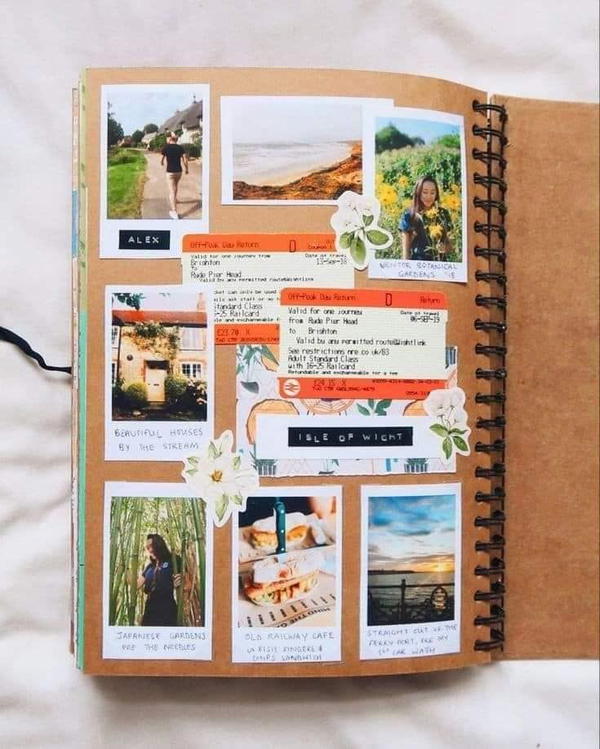 ALEX
VENTOR BOTANICAL
GARDENS '18
Off-Peak Day Return
Valid for one journey from
Brighton
To
Ryde Pier Head
Valid by any permitted route
Date of travel
13-Sep-18
Standard Class
16-25 Railcard
£23.70 X
Off-Peak Day Return
Return
Valid for one journey
Date of travel
from Ryde Pier Head
06-SEP-19
to Brighton
Valid by any permitted route
See restrictions nre.co.uk/83
Adult Standard Class
with 16-25 Railcard
Refundable and exchangeable for a fee
ISLE OF WIGHT
BEAUTIFUL HOUSES
BY THE STREAM
JAPANESE GARDENS
PRE THE NEEDLES
OLD RAILWAY CAFE
FISH FINGERS &
CHIPS SANDWICH
STRAIGHT OUT OF THE
FERRY PORT, PRE MY
1st CAR WASH